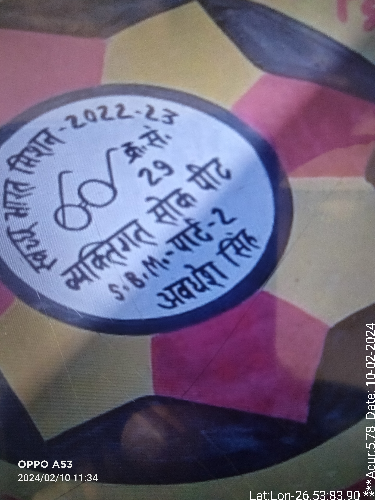 स्वच्छ भारत मिशन-2022-23
क्र.सं.
29
व्यक्तिगत सोक पीट
S.B.M.-पार्ट-2
अवधेश सिंह
OPPO A53
2024/02/10 11:34
Lat:Lon-26.53:83.90
***Acur:5.78 Date: 10-02-2024